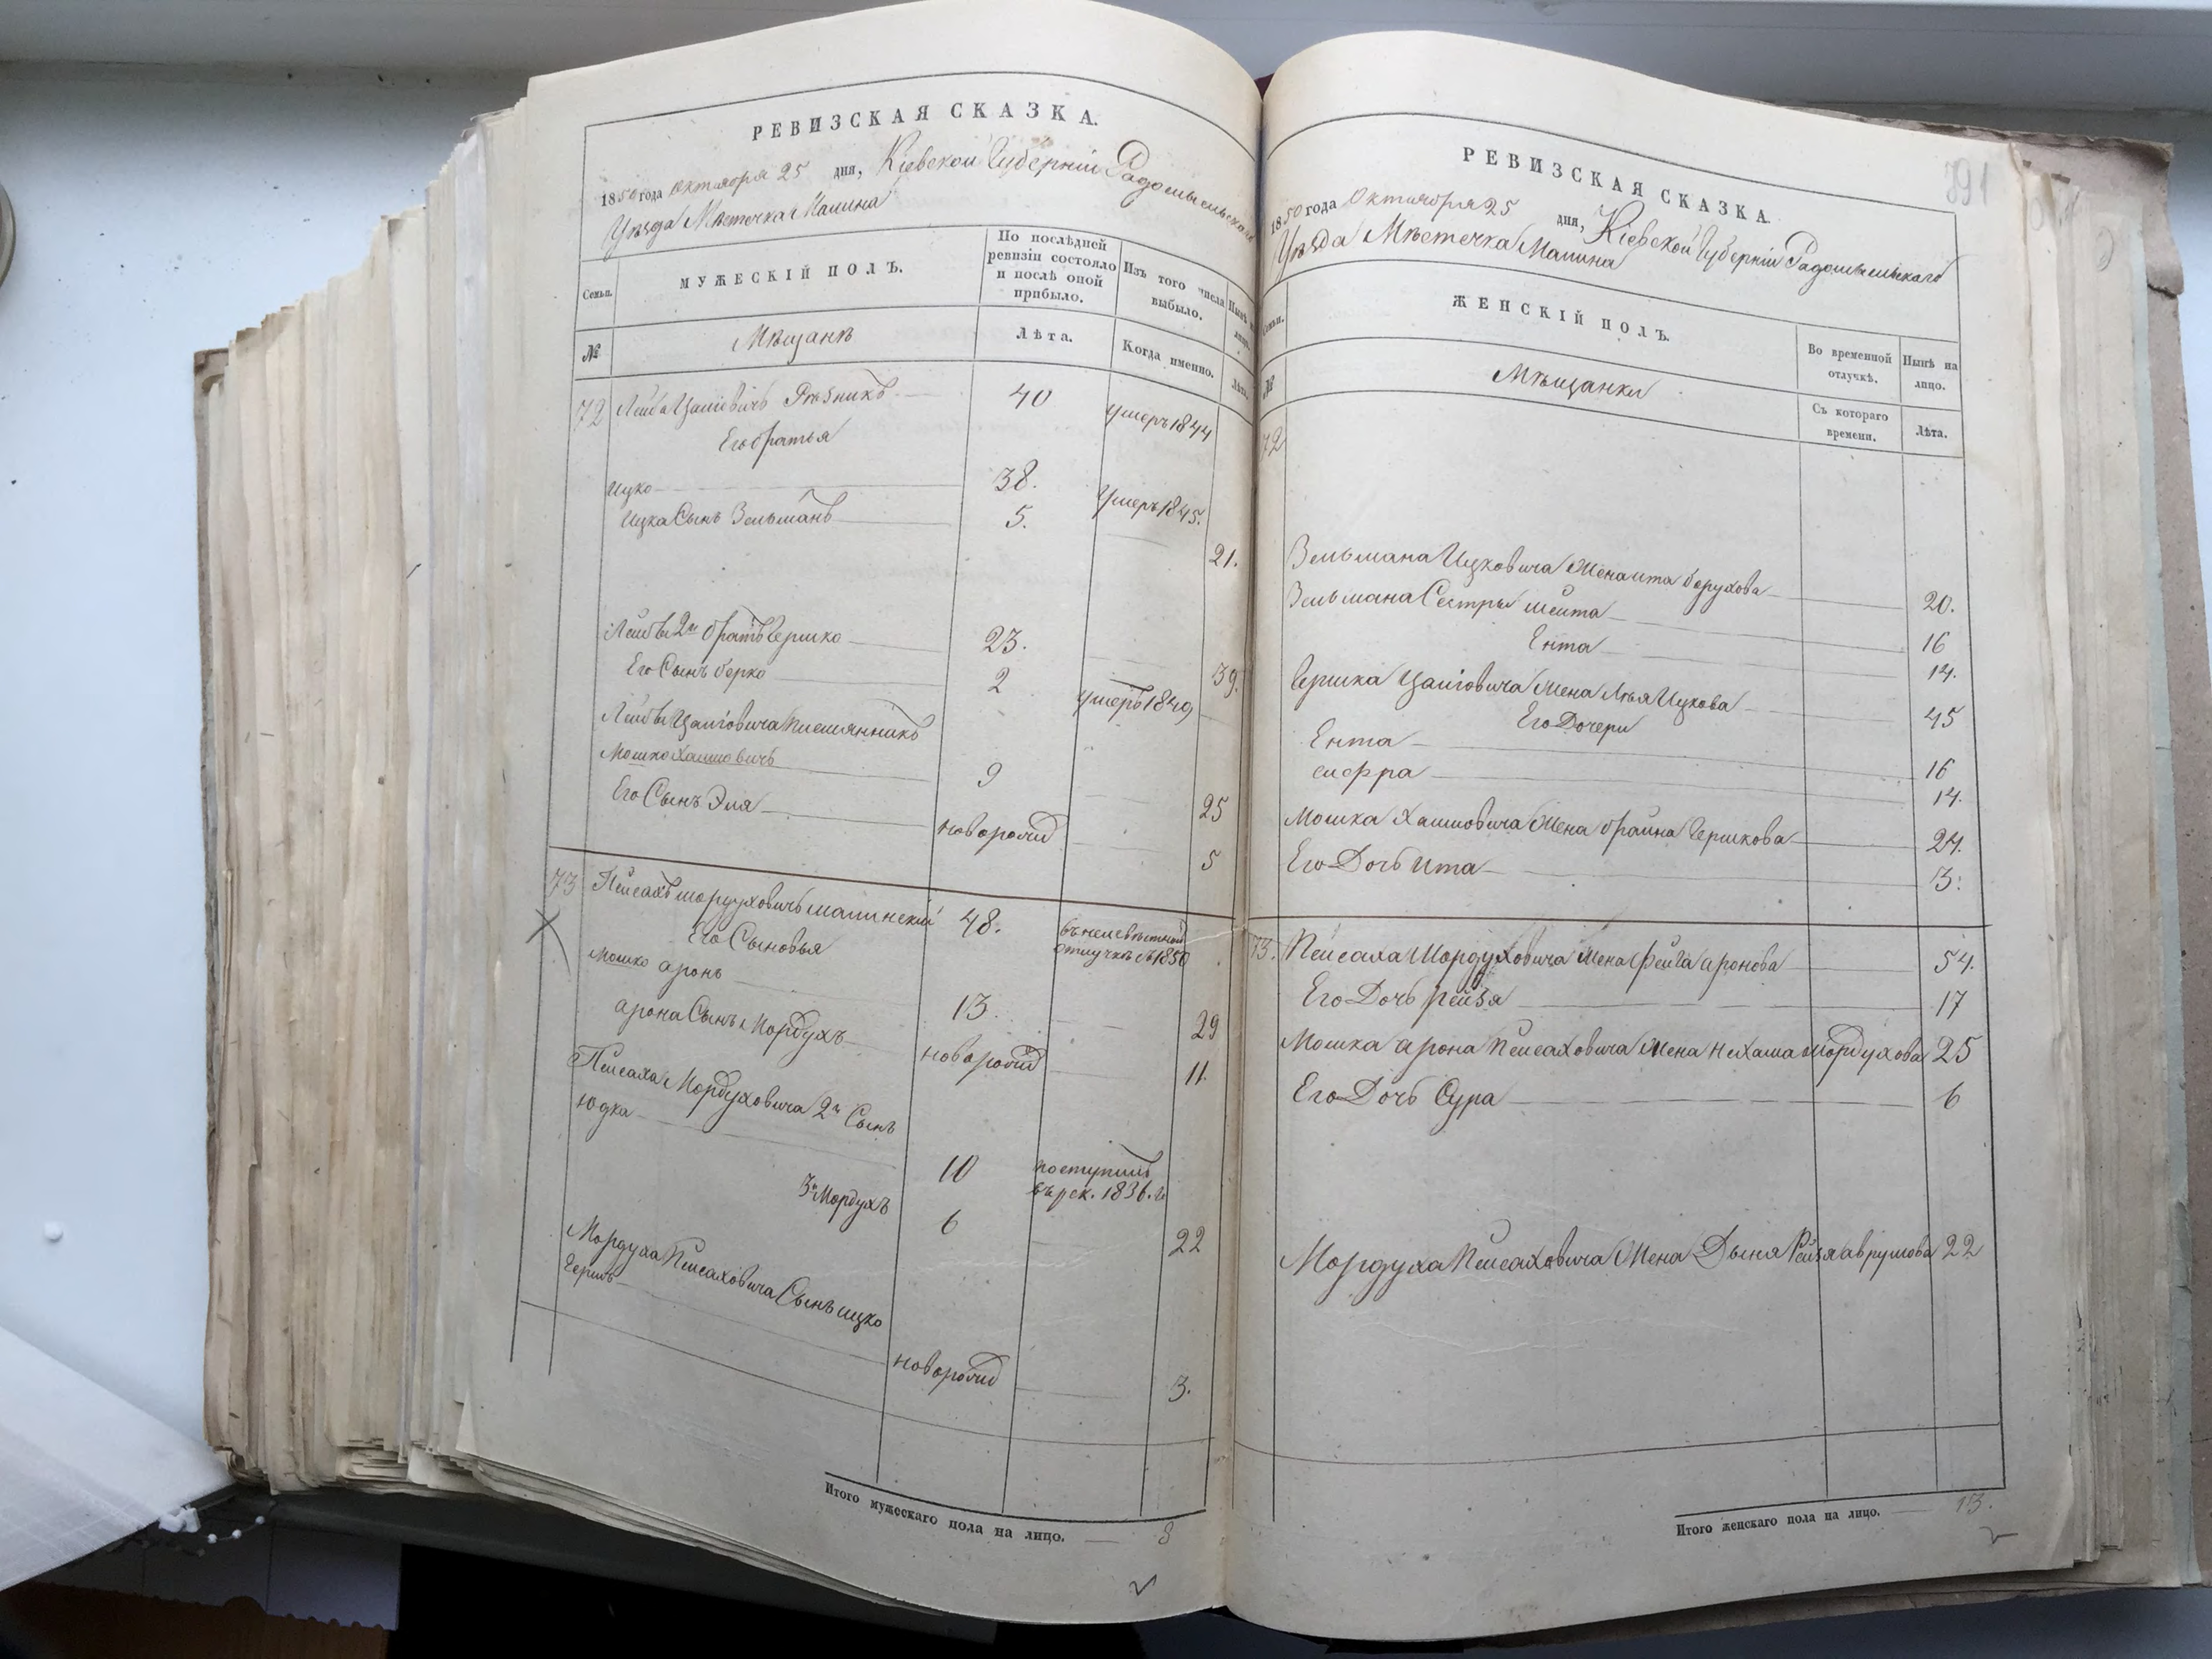 РЕВИЗСКАЯ СКАЗКА.
1850 года Октября 25 дня, Кіевской Губерніи Радомысльскаго
Уѣзда Мѣстечка Малина
Семьи.
МУЖЕСКІЙ ПОЛЪ.
По послѣдней ревизіи состояло и послѣ оной прибыло.
Изъ того числа выбыло.
Нынѣ на лицо.
№
Мѣщанѣ
Лѣта.
Когда именно.
Лѣта.
72 Лейба Цалiовичъ Рѣзникъ 40 умеръ 1844
Его братья
Ицко 38. умеръ 1845.
Ицка Сынъ Зельманъ 5. 21.
Лейбы 2й братъ Гершко 23. 39.
Его Сынъ берко 2 умеръ 1849
Лейбы Цалiовича племянникъ
Мошко Хаимовичъ 9 25
Его Сынъ Эля новорожд 5
73 Пейсахъ мордуховичъ малинскій 48. въ неизвѣстной отлучкѣ съ 1850
Его Сыновья
Мошко аронъ 13. 29
арона Сынъ Мордухъ новорожд 11.
Пейсаха Мордуховича 2й Сынъ
Юдка 10 поступилъ въ рек. 1836. г
3й Мордухъ 6 22
Мордуха Пейсаховича Сынъ ицко
Гершъ новорожд 3.
Итого мужескаго пола на лицо. 8
391
РЕВИЗСКАЯ СКАЗКА.
1850 года Октября 25 дня, Кіевской Губерніи Радомысльскаго
Уѣзда Мѣстечка Малина
Семьи.
ЖЕНСКІЙ ПОЛЪ.
Во временной отлучкѣ.
Нынѣ на лицо.
№
Мѣщанки
Съ котораго времени.
Лѣта.
72
Зельмана Ицковича Жена ита берухова 20.
Зельмана Сестры шейта 16
Ента 14.
Гершка Цалiовича Жена Лея Ицкова 45
Его Дочери
Ента 16
сифра 14.
Мошка Хаимовича Жена браина Гершкова 24.
Его Дочь ита 3.
73. Пейсаха Мордуховича Жена фейга аронова 54.
Его Дочь рейзя 17
Мошка арона Пейсаховича Жена нехама мордухова 25
Его Дочь Сура 6
Мордуха Пейсаховича Жена Дыня Рейзя аврумова 22
Итого женскаго пола на лицо. 13.